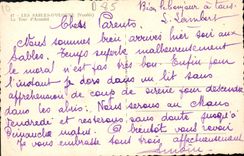 17 - LES SABLES-D'OLONNE (Vendée)
La Tour d'Arundel
Bien le bonjour à tous
L. Lambert
Chers Parents.
Nous sommes bien arrivés hier soir aux
Sables. Temps superbe malheureusement
le moral n'est pas très bon. Enfin pour
l'instant je dors dans un lit sans
appréhension de descendre
dans les abris. Nous serons au Mans
Vendredi et resterons sans doute jusqu'à
Dimanche matin. à bientôt vous revoir
Je vous embrasse tous trois affectueusement
Simone